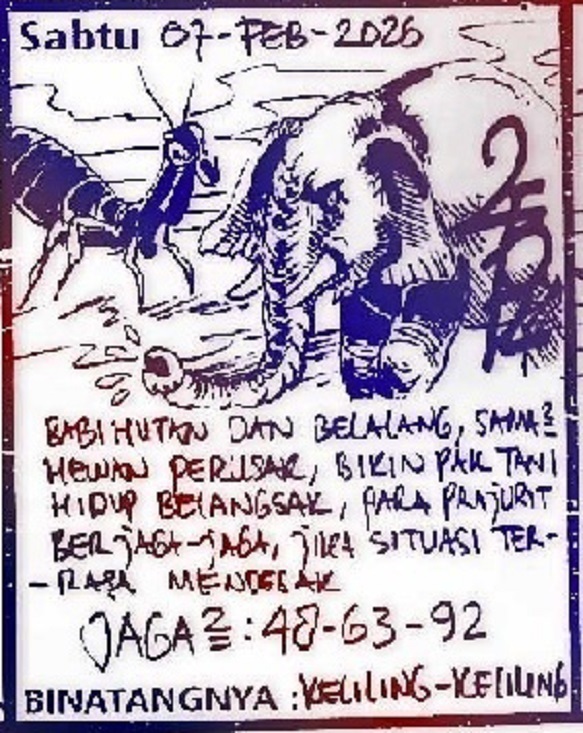 Sabtu 07-FEB-2026
BABI HUTAN DAN BELALANG, SAMA2
HEWAN PERUSAK, BIKIN PAK TANI
HIDUP BELANGSAK, PARA PRAJURIT
BERJAGA-JAGA, JIKA SITUASI TER-
-RASA MENDESAK
JAGA2 : 48-63-92
BINATANGNYA : KELILING-KELILING